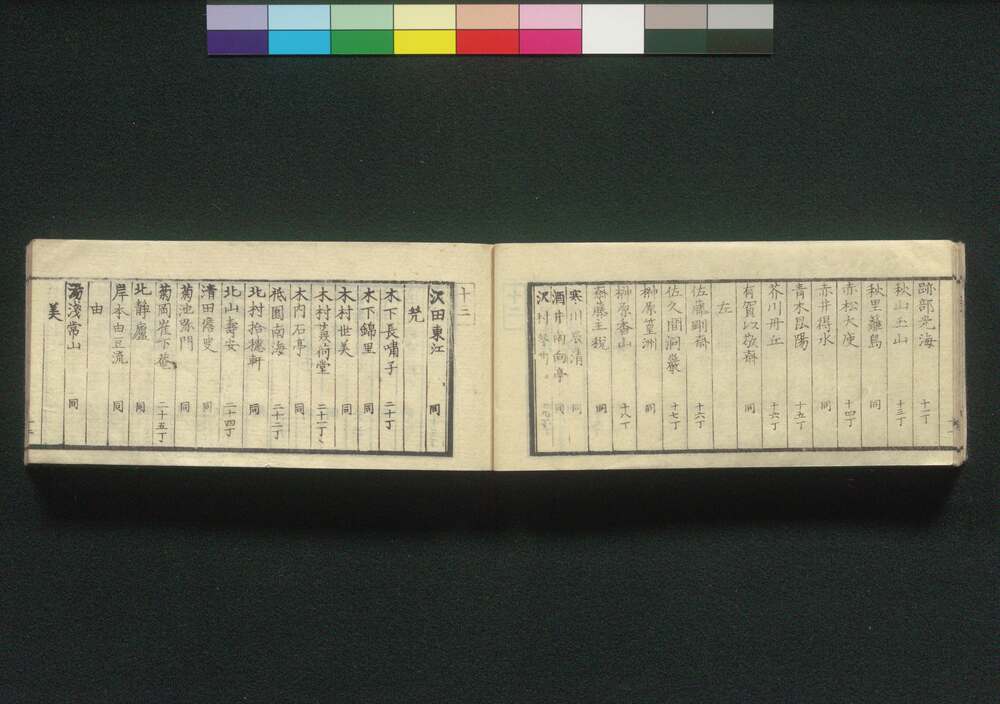 跡部光海 十一丁
秋山玉山 十三丁
秋里籬島 同
赤松大庾 十四丁
赤井得水 同
青木昆陽 十五丁
芥川丹丘 十六丁
有賀以敬斎 同
左
佐藤剛斎 十六丁
佐久間洞巌 十七丁
榊原篁洲 同
榊原香山 十八丁
斎藤 同
寒川辰清 同
酒井 亭 同
沢村琴
十二
沢田東江 同
幾
木下長嘯子 二十丁
木下錦里 同
木村世美 同
木村蒹葭堂 二十一丁
木内石亭 同
祇園南海 二十二丁
北村拾穂軒 同
北山寿安 二十四丁
清田儋叟 同
菊池 門 同
菊岡 下菴 二十五丁
北静廬 同
岸本由豆流 同
由
湯浅常山 同
美